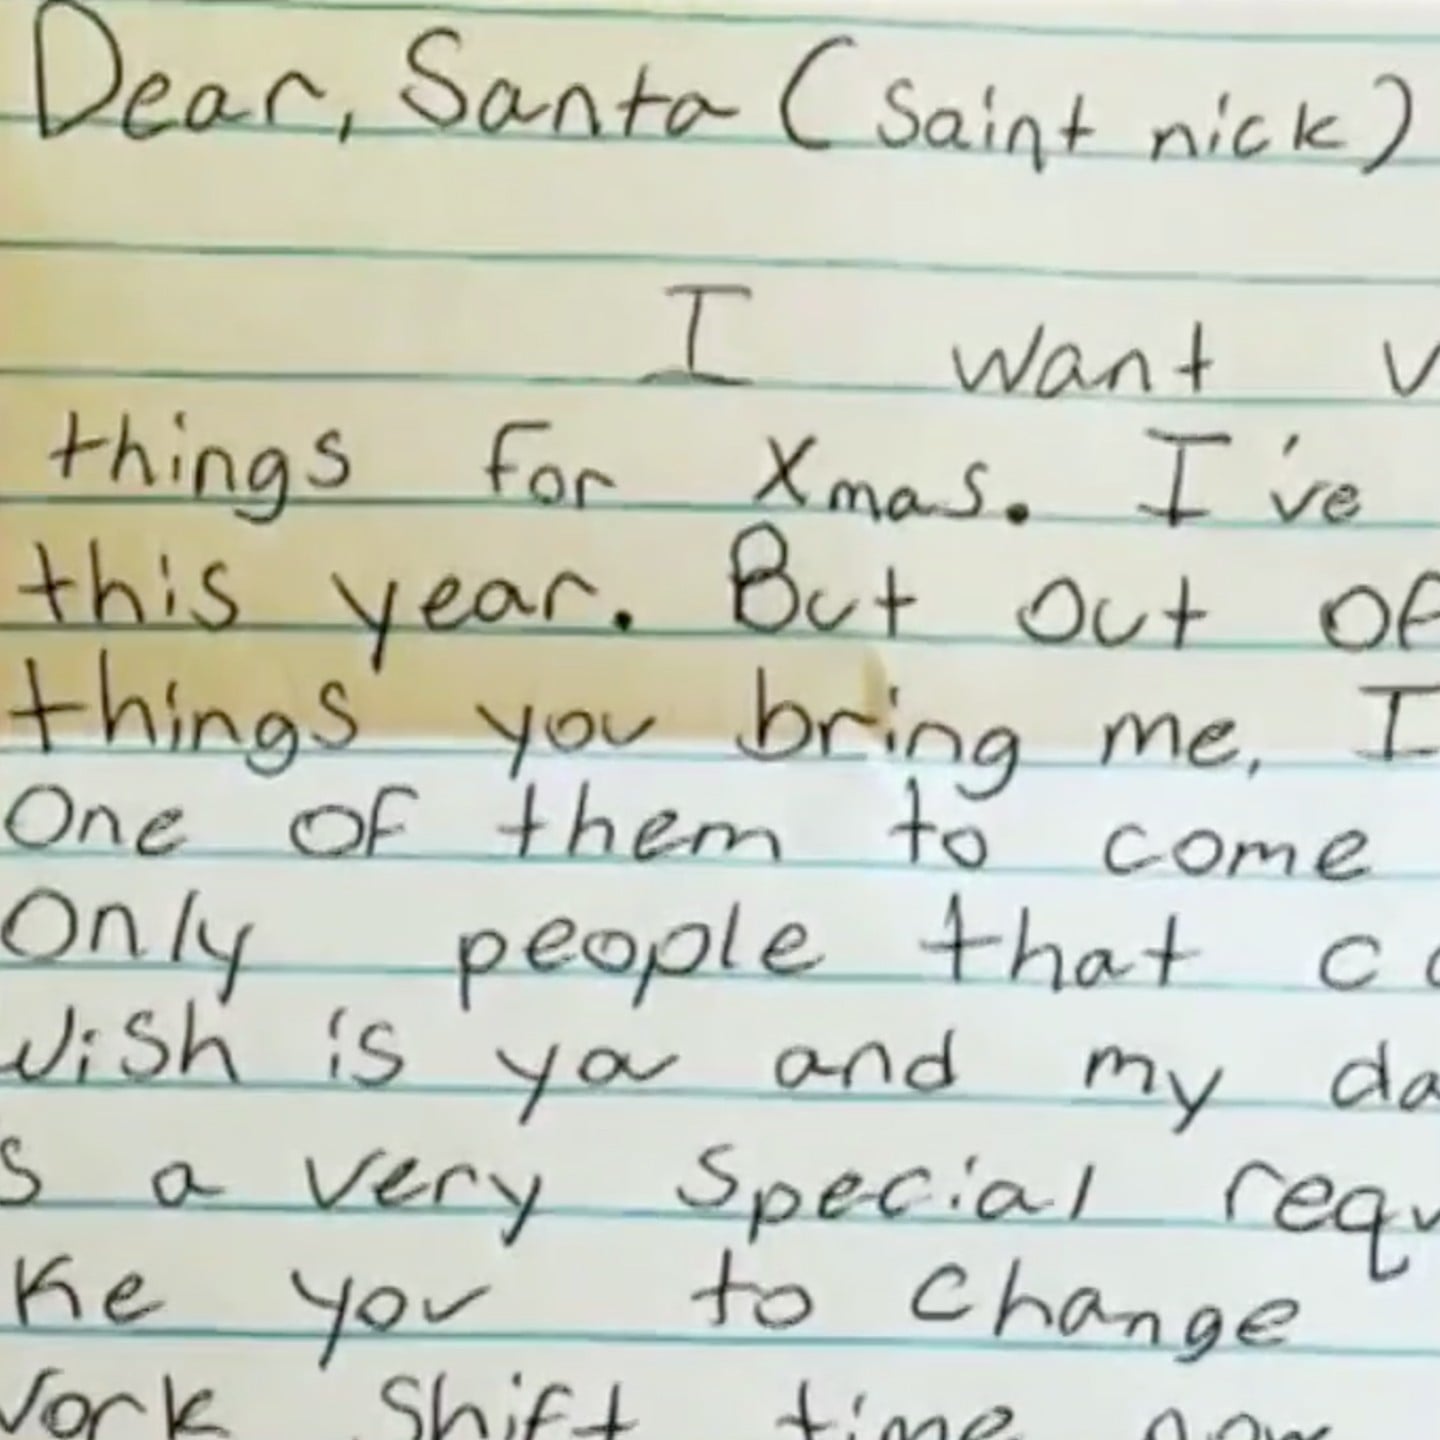 Dear, Santa (Saint nick)
I want
things for Xmas. I've
this year. But out of
things you bring me, I
One of them to come
Only people that
wish is you and my
a very Special
you to change
Work Shift time now